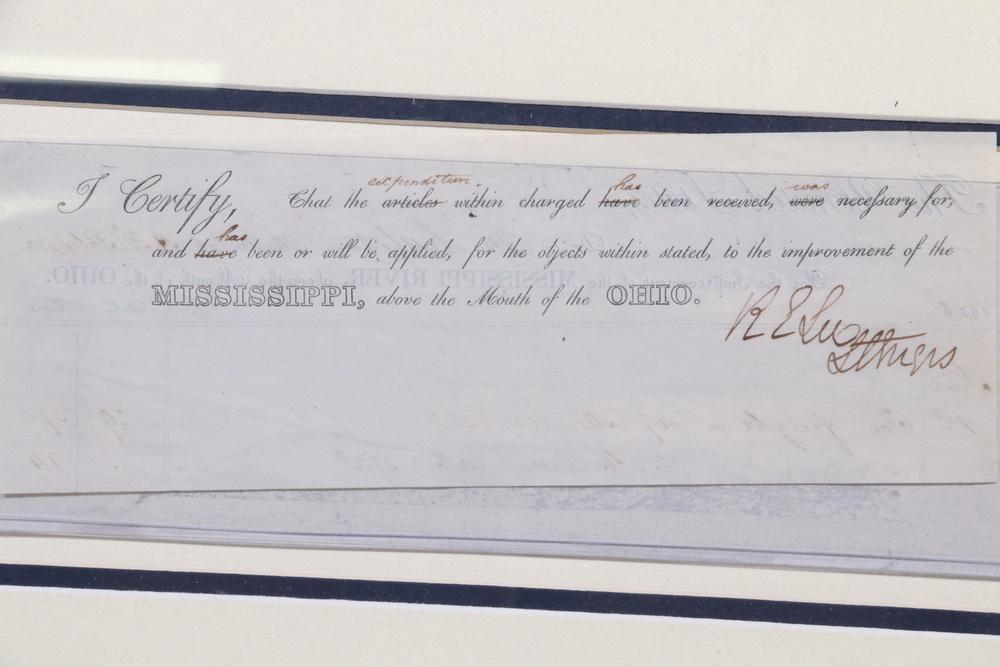 expenditure has was
I Certify, That the articles within charged have been received, were necessary for,
has
and have been or will be applied, for the objects within stated, to the improvement of the
MISSISSIPPI, above the Mouth of the OHIO.
R E Lee
Lt Engrs